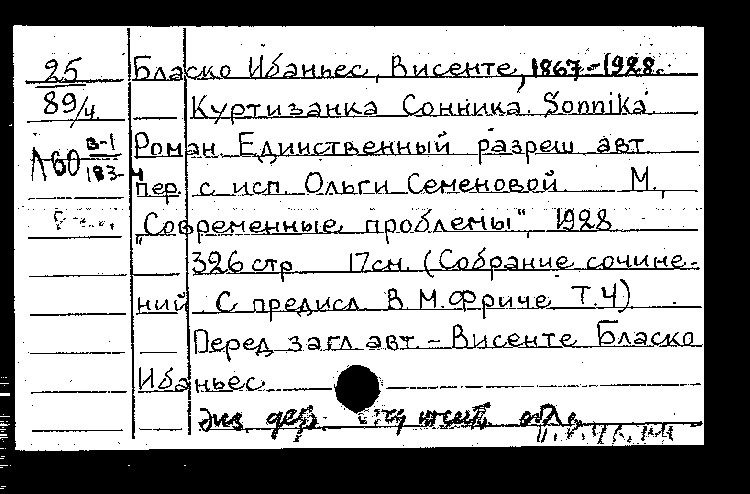 25
89/4.
Л60 в-1
183-4
Бласко Ибаньес, Висенте, 1867-1928.
Куртизанка Сонника. Sonnika.
Роман. Единственный разреш авт.
пер. с исп. Ольги Семеновой. М.,
„Современные проблемы", 1928
326 стр 17см. (Собрание сочине-
ний. С предисл. В.М.Фриче. Т.4)
Перед загл. авт. - Висенте Бласко
Ибаньес
Экз. деф.